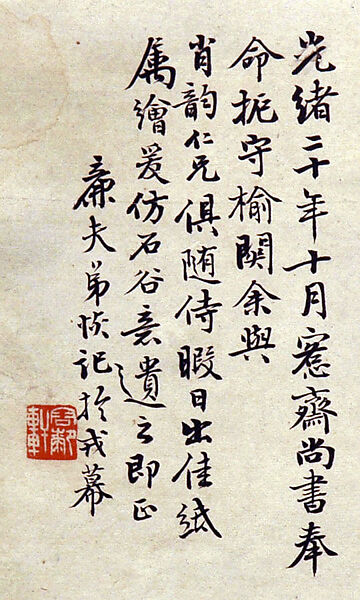 光緒二十年十月愙齋尚書奉
命扼守榆關余與
肖韵仁兄俱随侍暇日出佳紙
属繪爰仿石谷意遺之即正
廉夫弟恢記於戎幕